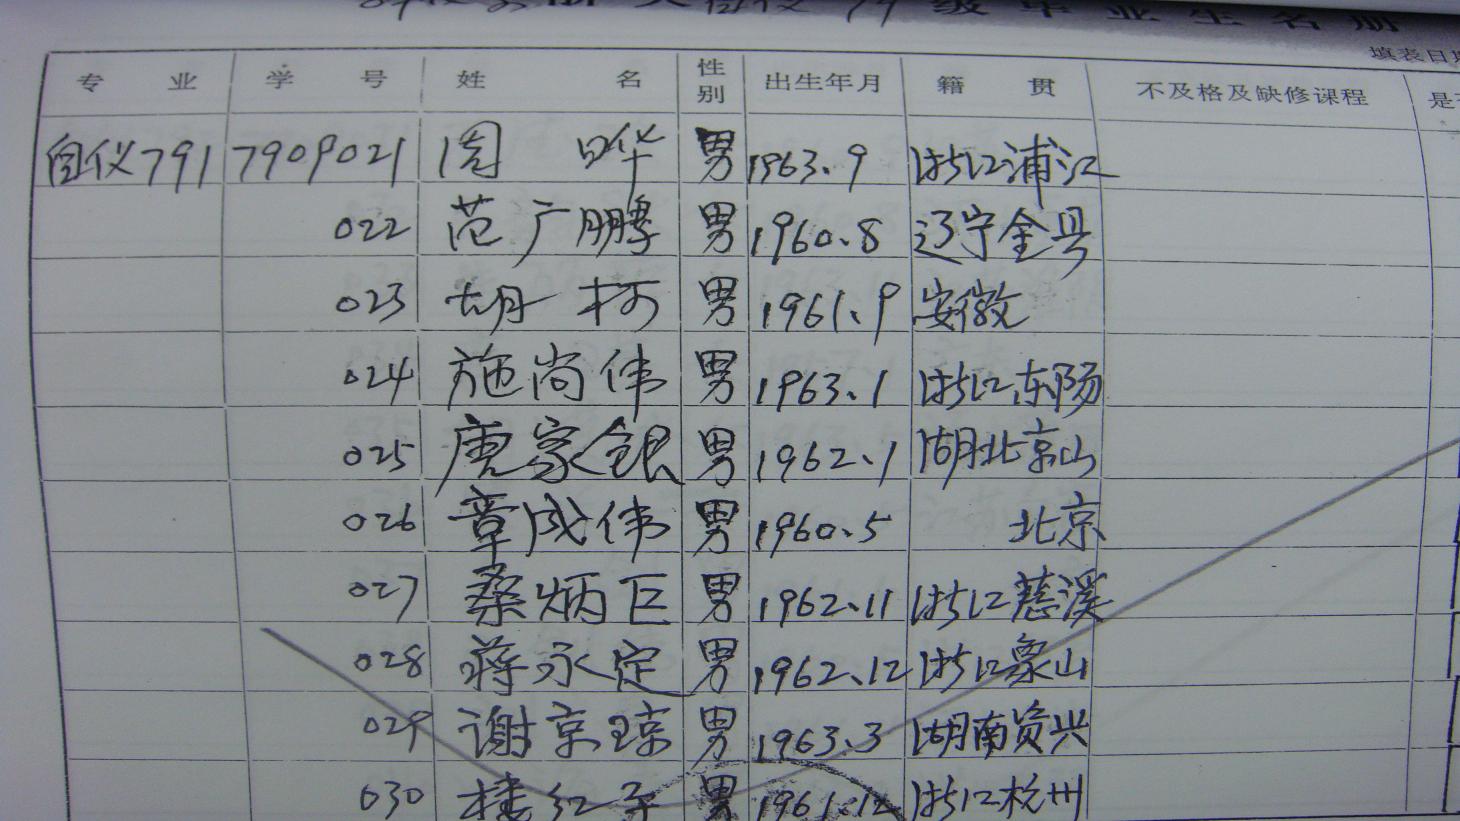 79级毕业生名册
填表日期
专业 学号 姓名 性别 出生年月 籍贯 不及格及缺修课程
自仪791 7909021 周晔 男 1963.9 浙江浦江
022 范广鹏 男 1960.8 辽宁金县
023 胡柯 男 1961.9 安徽
024 施尚伟 男 1963.1 浙江东阳
025 唐家银 男 1962.1 湖北京山
026 章成伟 男 1960.5 北京
027 桑炳巨 男 1962.11 浙江慈溪
028 蒋永定 男 1962.12 浙江象山
029 谢京琼 男 1963.3 湖南资兴
030 楼红 男 1961.12 浙江杭州